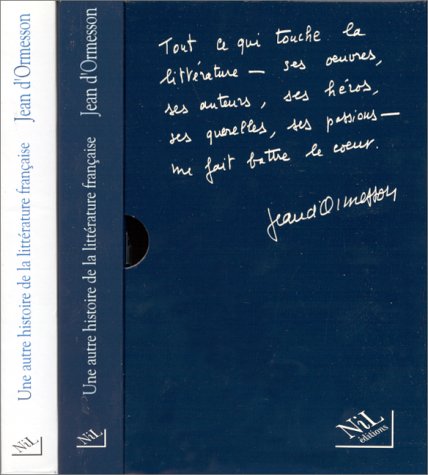 Jean d'Ormesson
Une autre histoire de la littérature française
NiL
Jean d'Ormesson
Une autre histoire de la littérature française
NiL
Tout ce qui touche la
littérature — ses oeuvres,
ses auteurs, ses héros,
ses querelles, ses passions —
me fait battre le coeur.
Jean d'Ormesson
NiL
éditions